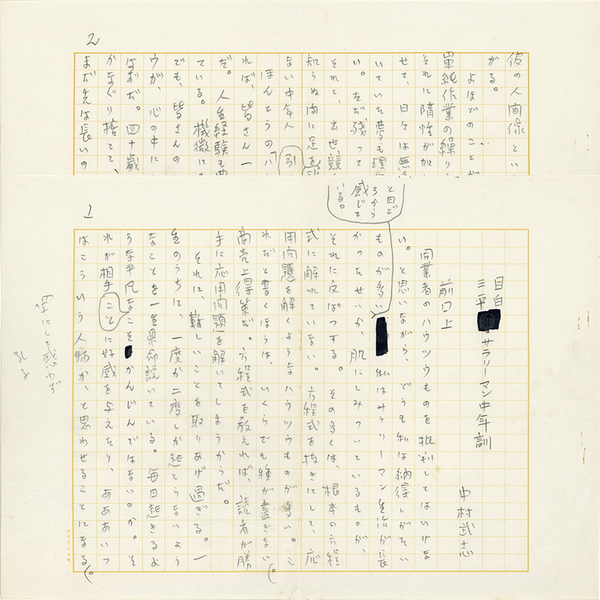 1
目白
三平 サラリーマン中年訓
中村武志
前口上
同業者のハウツウものを批判してはいけな
い。と思いながら、どうも私は納得しがたい
ものが多い
と日ご
ろから
感じて
いる。
私はサラリーマン生活が長
かったせいか、肌にしみついているものが、
それに反ぱつする。その多くは、根本の方程
式に解れていない。方程式を抜きにして、応
用問題を解くようなハウツウものが多い。こ
れだと書くほうは、いくらでも種が盡きない。
商売上得策だ。方程式を教えれば、読者が勝
手に応用問題を解いてしまうからだ。
それに、難しいことを取りあげ過ぎる。一
生のうちに、一度か二度しか起こらないよう
なことを一生懸命説いている。毎日起きるよ
うな平凡なこそ かんじんではないのか。そ
れが相手ことに好感を与えたり、あああいつ
はこういう人物か、と思わせることになる。
2
彼の人間像とい
がる。
よほどのことが
単純作業の繰り
それに惰性が加
せて、日々は無
いていた夢も理
い。ただ残って
それと、出世競
知らぬ間に足を
ない中年人
引
ほんとうのハ
れば、皆さん一
だ。人生経験も
ている。機微に
でも、皆さんの
ウが、心の中に
はずだ。四十歳
かなぐり捨てて、
まだ先は長いの